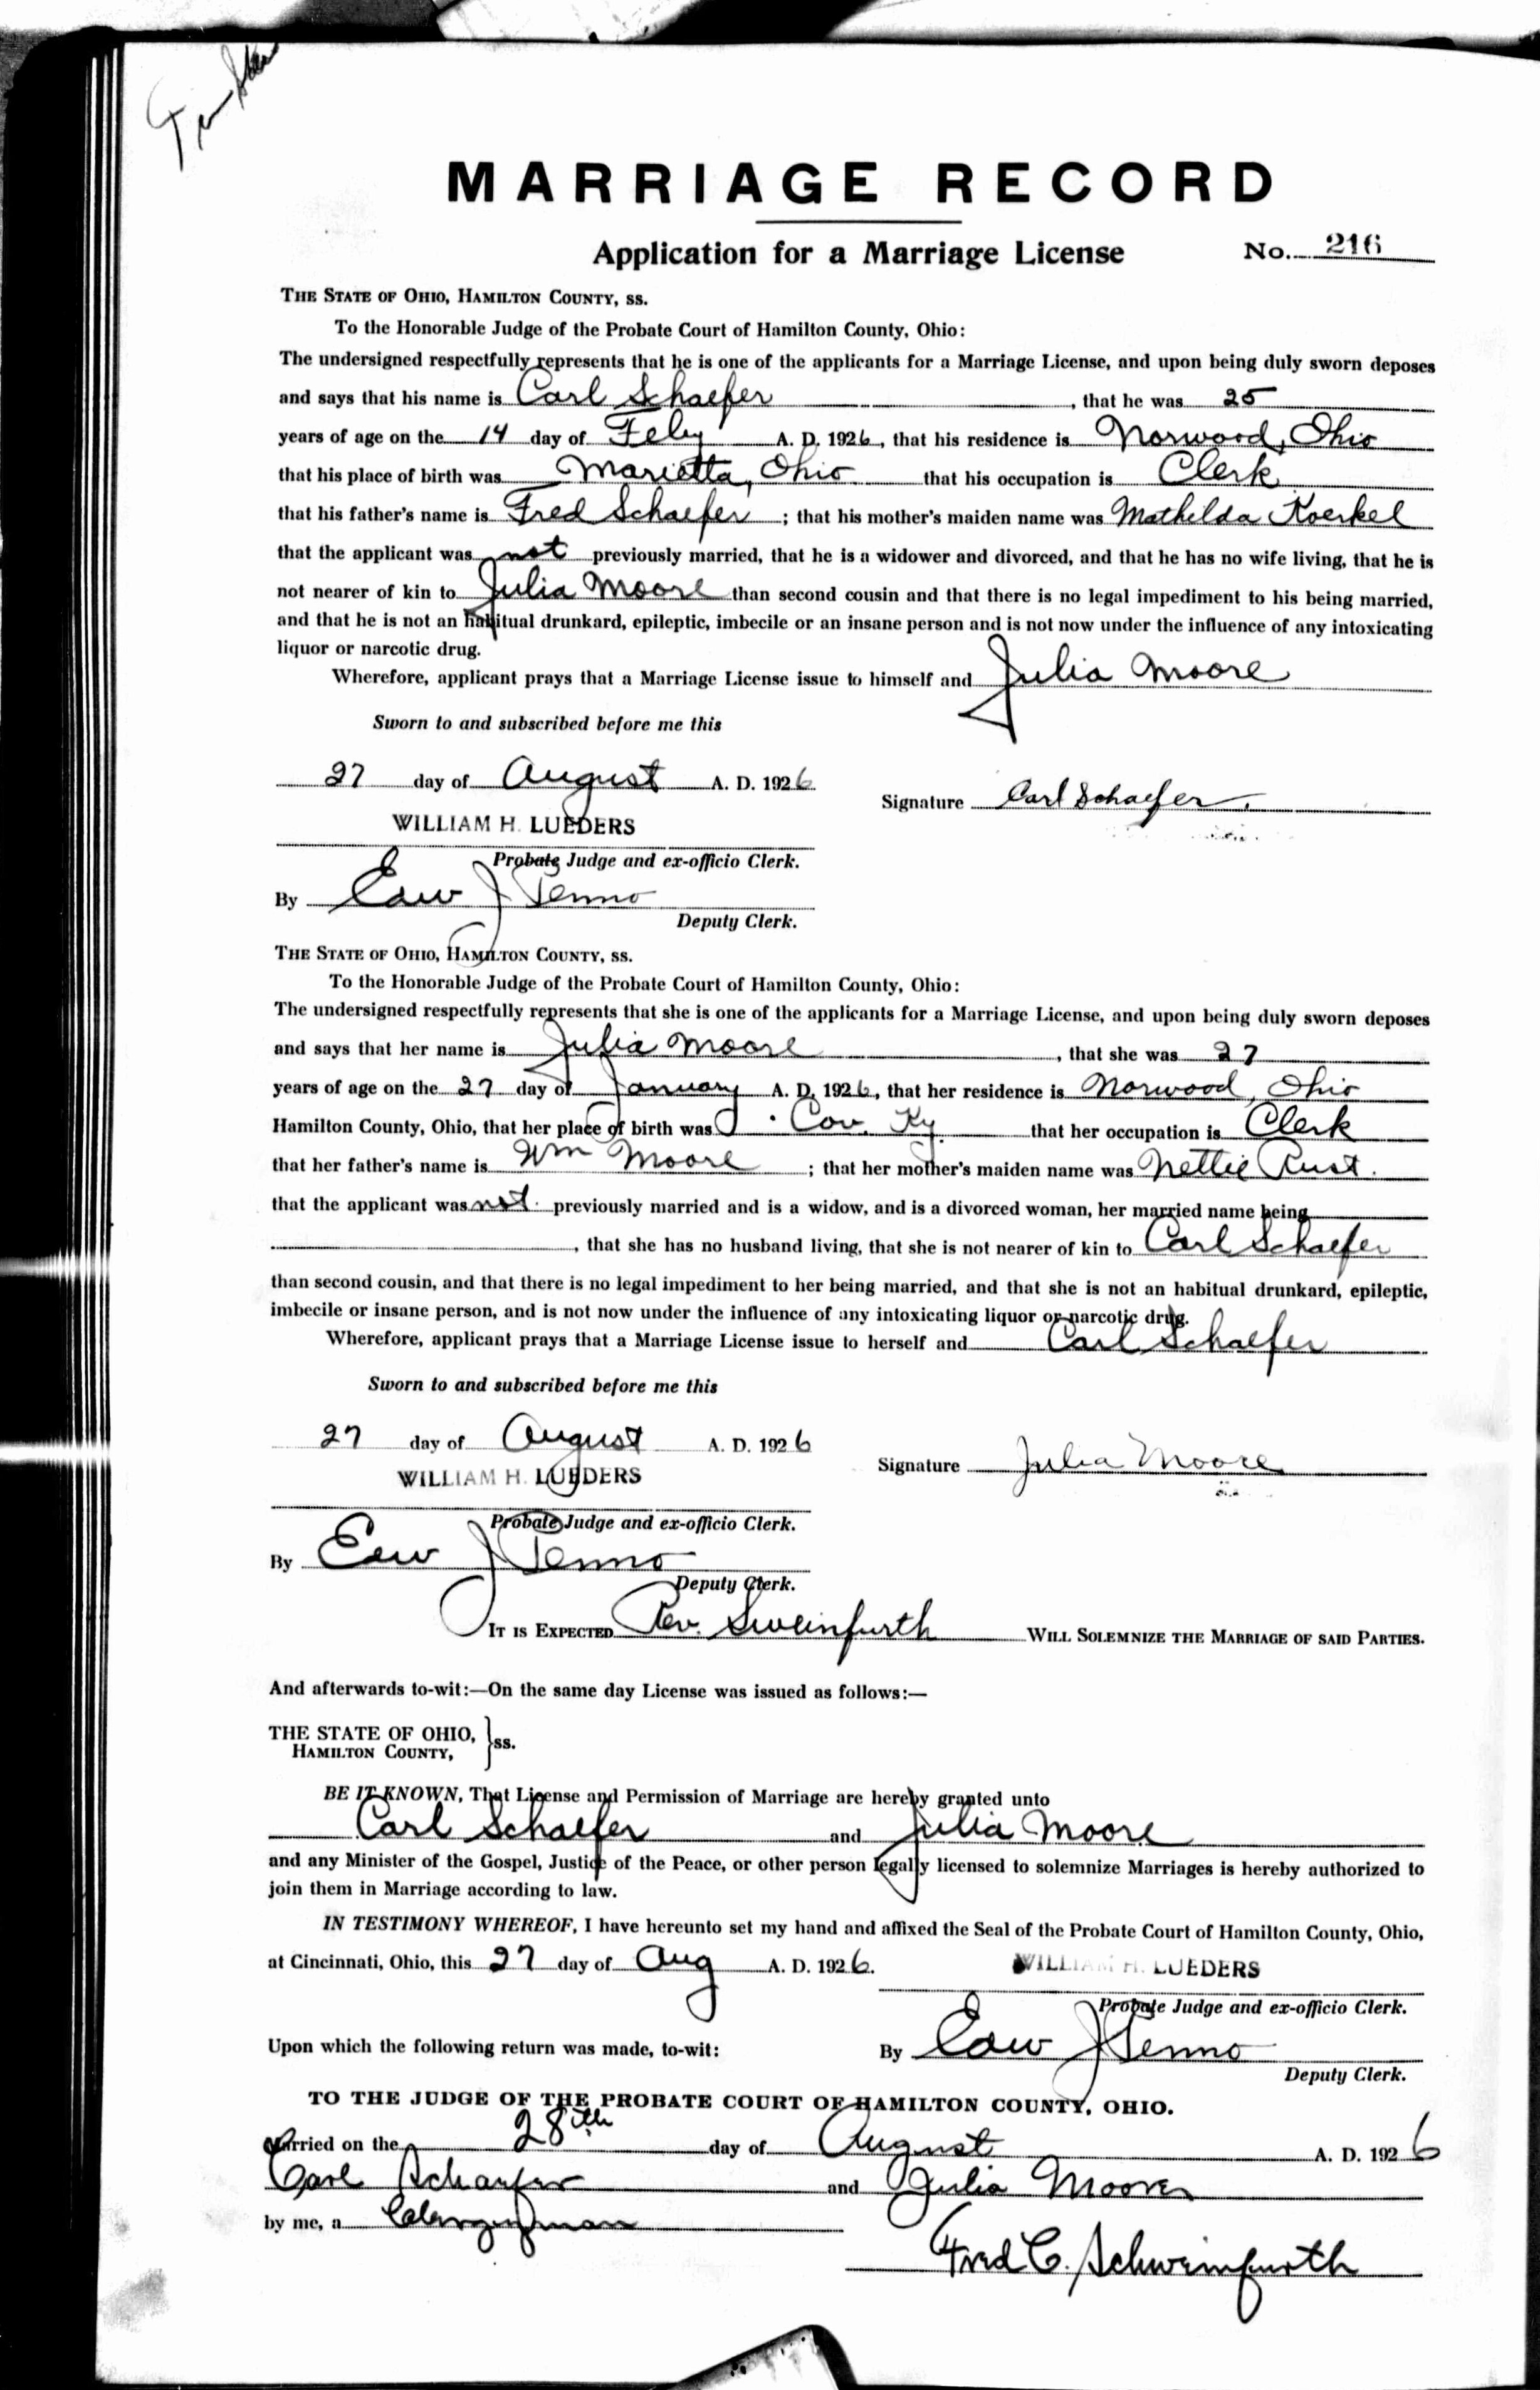 MARRIAGE RECORD
Application for a Marriage License No. 216
THE STATE OF OHIO, HAMILTON COUNTY, ss.
To the Honorable Judge of the Probate Court of Hamilton County, Ohio:
The undersigned respectfully represents that he is one of the applicants for a Marriage License, and upon being duly sworn deposes
and says that his name is Carl Schaefer, that he was 25
years of age on the 14 day of Feby A. D. 1926, that his residence is Norwood, Ohio
that his place of birth was Marietta, Ohio that his occupation is Clerk
that his father's name is Fred Schaefer; that his mother's maiden name was Mathelda Koerkel
that the applicant was not previously married, that he is a widower and divorced, and that he has no wife living, that he is
not nearer of kin to Julia Moore than second cousin and that there is no legal impediment to his being married,
and that he is not an habitual drunkard, epileptic, imbecile or an insane person and is not now under the influence of any intoxicating
liquor or narcotic drug.
Wherefore, applicant prays that a Marriage License issue to himself and Julia Moore
Sworn to and subscribed before me this
27 day of August A. D. 1926
Signature Carl Schaefer.
WILLIAM H. LUEDERS
Probate Judge and ex-officio Clerk.
By Edw J Tenno
Deputy Clerk.
THE STATE OF OHIO, HAMILTON COUNTY, ss.
To the Honorable Judge of the Probate Court of Hamilton County, Ohio:
The undersigned respectfully represents that she is one of the applicants for a Marriage License, and upon being duly sworn deposes
and says that her name is Julia Moore, that she was 27
years of age on the 27 day of January A. D. 1926, that her residence is Norwood, Ohio
Hamilton County, Ohio, that her place of birth was Cov. Ky. that her occupation is Clerk
that her father's name is Wm Moore; that her mother's maiden name was Nettie Rust.
that the applicant was not previously married and is a widow, and is a divorced woman, her married name being
, that she has no husband living, that she is not nearer of kin to Carl Schaefer
than second cousin, and that there is no legal impediment to her being married, and that she is not an habitual drunkard, epileptic,
imbecile or insane person, and is not now under the influence of any intoxicating liquor or narcotic drug.
Wherefore, applicant prays that a Marriage License issue to herself and Carl Schaefer
Sworn to and subscribed before me this
27 day of August A. D. 1926
Signature Julia Moore
WILLIAM H. LUEDERS
Probate Judge and ex-officio Clerk.
By Edw J Tenno
Deputy Clerk.
IT IS EXPECTED Rev. Sweinfurth WILL SOLEMNIZE THE MARRIAGE OF SAID PARTIES.
And afterwards to-wit:—On the same day License was issued as follows:—
THE STATE OF OHIO,
HAMILTON COUNTY, } ss.
BE IT KNOWN, That License and Permission of Marriage are hereby granted unto
Carl Schaefer and Julia Moore
and any Minister of the Gospel, Justice of the Peace, or other person legally licensed to solemnize Marriages is hereby authorized to
join them in Marriage according to law.
IN TESTIMONY WHEREOF, I have hereunto set my hand and affixed the Seal of the Probate Court of Hamilton County, Ohio,
at Cincinnati, Ohio, this 27 day of Aug A. D. 1926.
WILLIAM H. LUEDERS
Probate Judge and ex-officio Clerk.
Upon which the following return was made, to-wit:
By Edw J Tenno
Deputy Clerk.
TO THE JUDGE OF THE PROBATE COURT OF HAMILTON COUNTY, OHIO.
Married on the 28th day of August A. D. 1926
Carl Schaefer and Julia Moore
by me, a Clergyman
Fred C. Schweinfurth